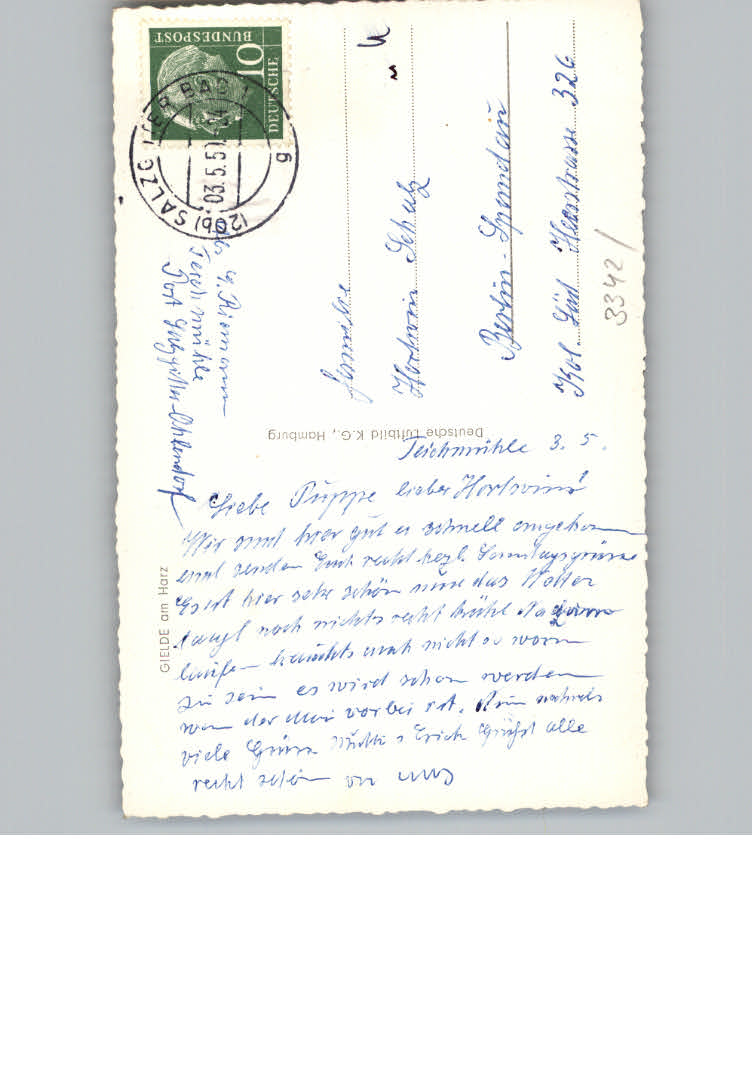 DEUTSCHE
BUNDESPOST
10
(20b) SALZGITTER BAD 1
03.5.57
g
Teichmühle
Post Salzgitter-Ohlendorf
Familie
Hortwin Schulz
Berlin-Spandau
Kol. Süd Heerstrasse 326
3342/
Deutsche Luftbild K.G., Hamburg
GIELDE am Harz
Teichmühle 3. 5.
Liebe Puppe lieber Hortwin!
Wir sind hier gut u schnell angekomm
und senden Euch recht herzl. Sonntagsgrüsse
Es ist hier sehr schön nur das Wetter
taugt noch nichts recht kühl
laufen brauchts auch nicht so warm
zu sein es wird schon werden
wen der Mai vorbei ist. Nun nochmals
viele Grüsse Mutti u Erich Grüßt alle
recht schön von uns